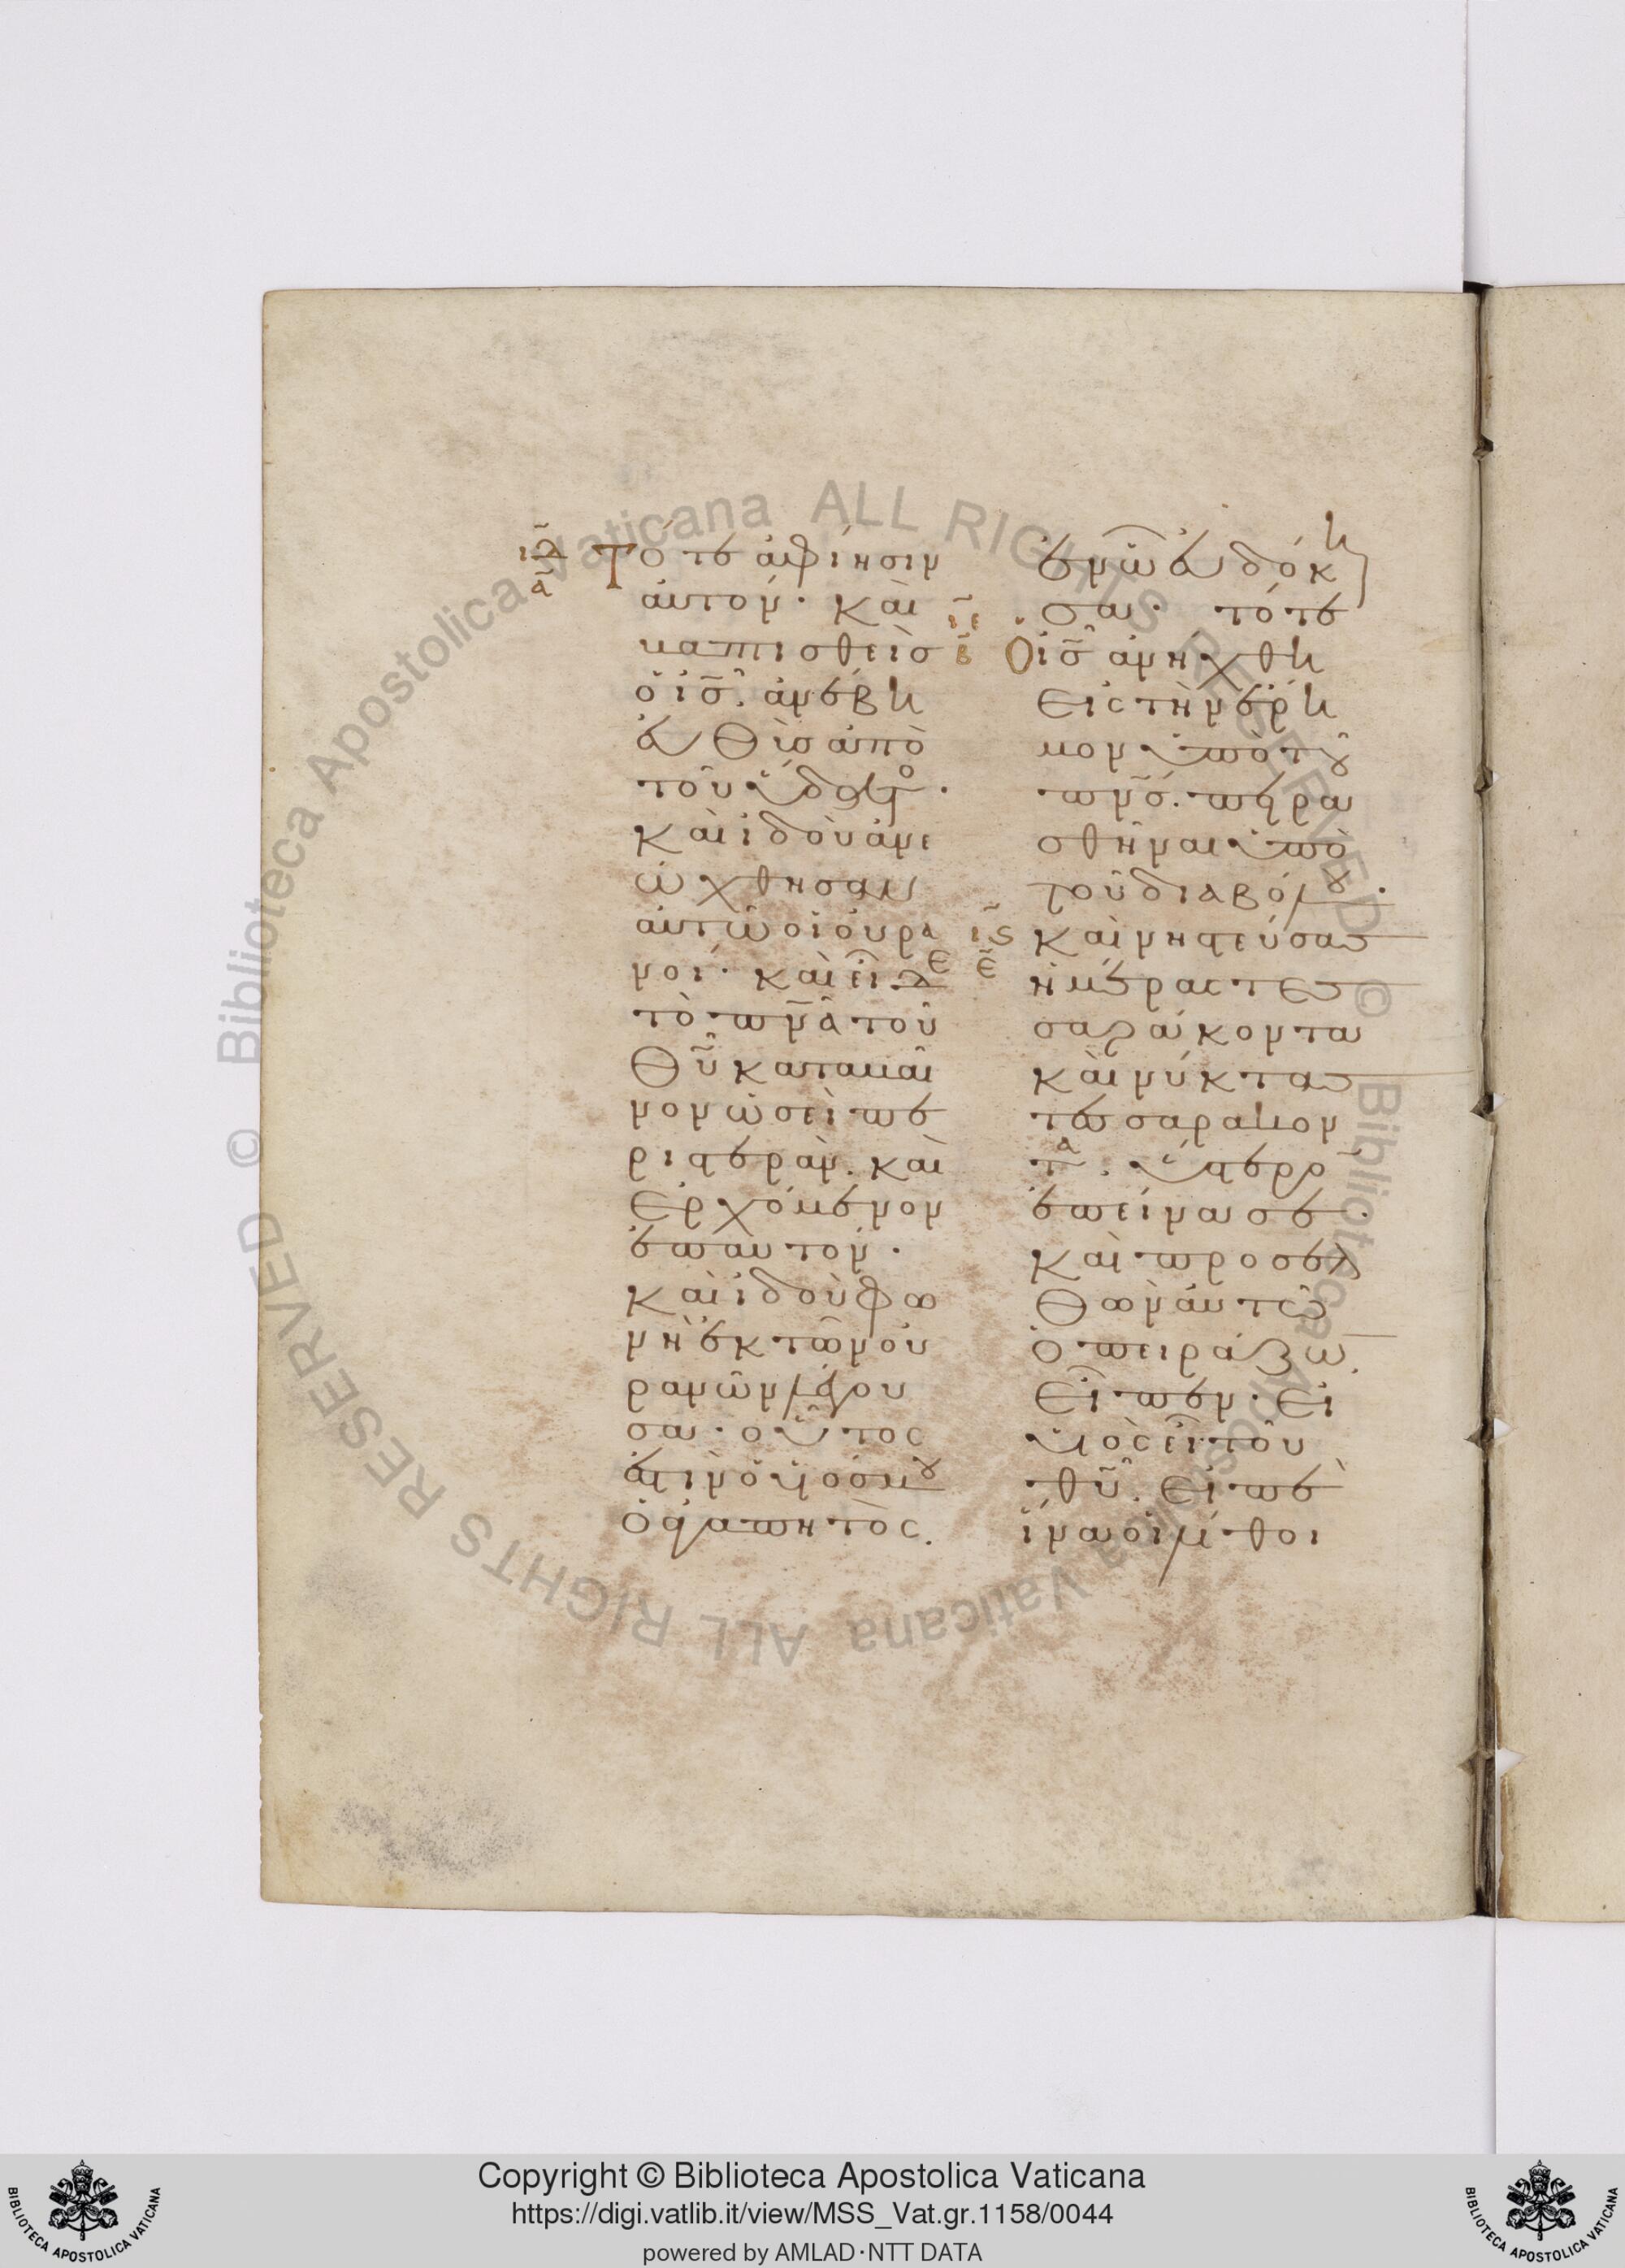 ιδ
α
Τότε ἀφίησιν
αὐτόν· καὶ
βαπτισθεὶσ
ὁ ισ, ἀνέβη
εὐθὺσ ἀπὸ
τοῦ ὕδατο.
καὶ ἰδοὺ ἀνε
ώχθησαν
αὐτῶ οἱ οὐρα
νοί· καὶ εἶδε
τὸ πνα τοῦ
θυ καταβαῖ
νον ὡσεὶ πε
ριστεράν. καὶ
ἐρχόμενον
ἐπαυτόν.
καὶ ἰδοὺ φω
νὴ ἐκ τῶν οὐ
ρανῶν λέγου
σα· οὗτος
ἐστιν ὁ υἱόσ μου
ὁ ἀγαπητὸς.
ἐν ὧ εὐδόκη
σα· τότε
ιε
β
Ὁ ισ ἀνήχθη
εἰς τὴν ἔρη
μον ὑπὸ τοῦ
πνσ. πειρα
σθῆναι ὑπὸ
τοῦ διαβόλου.
ις
ε
καὶ νηστεύσασ
ἡμέρας τεσ
σαράκοντα
καὶ νύκτασ
τεσσαράκον
τα, ὕστερο
ἐπείνασε.
καὶ προσελ
θὼν αὐτῶ
ὁ πειράζων
εἶπεν· εἰ
υἱὸς εἶ τοῦ
θυ. εἰπὲ
ἵνα οἱ λίθοι
Copyright © Biblioteca Apostolica Vaticana
https://digi.vatlib.it/view/MSS_Vat.gr.1158/0044
powered by AMLAD·NTT DATA
BIBLIOTECA APOSTOLICA VATICANA
BIBLIOTECA APOSTOLICA VATICANA
© Biblioteca Apostolica Vaticana ALL RIGHTS RESERVED
© Biblioteca Apostolica Vaticana ALL RIGHTS RESERVED